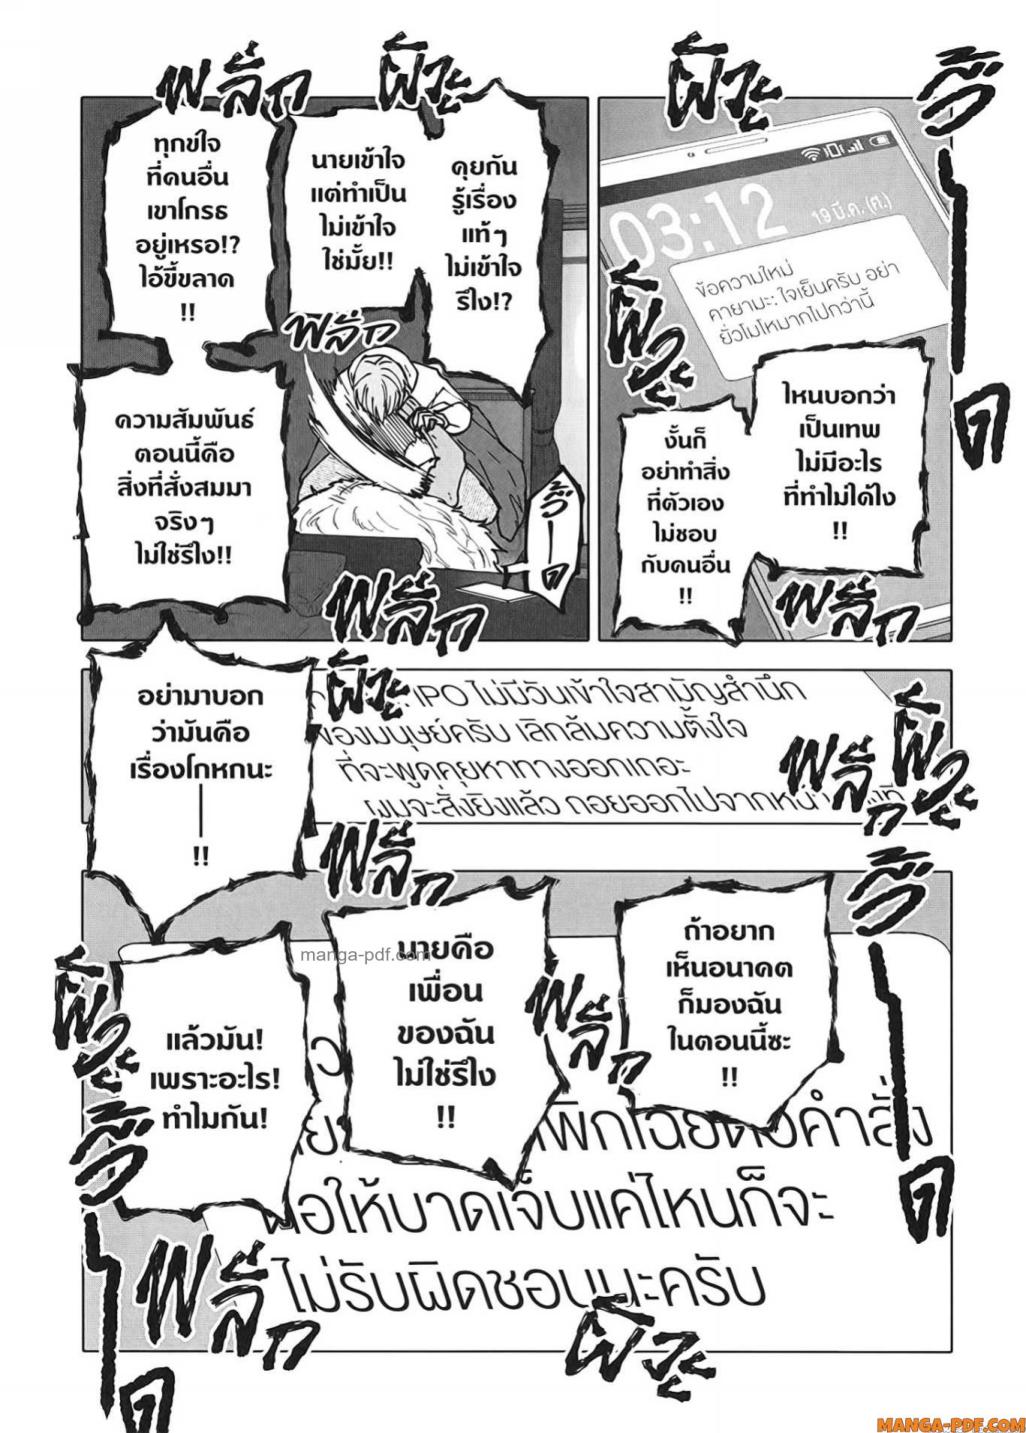 ผิวะ
วี้ด
03:12
19 มี.ค. (ศ.)
ข้อความใหม่
คายามะ: ใจเย็นครับ อย่า
ยั่วโมโหมากไปกว่านี้
ผิวะ
ไหนบอกว่า
เป็นเทพ
ไม่มีอะไร
ที่ทำไม่ได้ไง
!!
งั้นก็
อย่าทำสิ่ง
ที่ตัวเอง
ไม่ชอบ
กับคนอื่น
!!
พลึ่ก
ผิวะ
พลึ่ก
คุยกัน
รู้เรื่อง
แท้ๆ
ไม่เข้าใจ
รึไง!?
นายเข้าใจ
แต่ทำเป็น
ไม่เข้าใจ
ใช่มั้ย!!
ทุกข์ใจ
ที่คนอื่น
เขาโกรธ
อยู่เหรอ!?
ไอ้ขี้ขลาด
!!
พลึ่ก
ความสัมพันธ์
ตอนนี้คือ
สิ่งที่สั่งสมมา
จริงๆ
ไม่ใช่รึไง!!
วี้ด
พลึ่ก
ผิวะ
IPO ไม่มีวันเข้าใจสามัญสำนึก
ของมนุษย์ครับ เลิกล้มความตั้งใจ
ที่จะพูดคุยหาทางออกเถอะ
ผมจะสั่งยิงแล้ว ถอยออกไปจาก
พลึ่ก
ผิวะ
อย่ามาบอก
ว่ามันคือ
เรื่องโกหกนะ
!!
พลึ่ก
วี้ด
ถ้าอยาก
เห็นอนาคต
ก็มองฉัน
ในตอนนี้ซะ
!!
พลึ่ก
นายคือ
เพื่อน
ของฉัน
ไม่ใช่รึไง
!!
manga-pdf.com
แล้วมัน!
เพราะอะไร!
ทำไมกัน!
ผิวะ
วี้ด
คำสั่ง
ต่อให้บาดเจ็บแค่ไหนก็จะ
ไม่รับผิดชอบนะครับ
พลึ่ก
ผิวะ
MANGA-PDF.COM